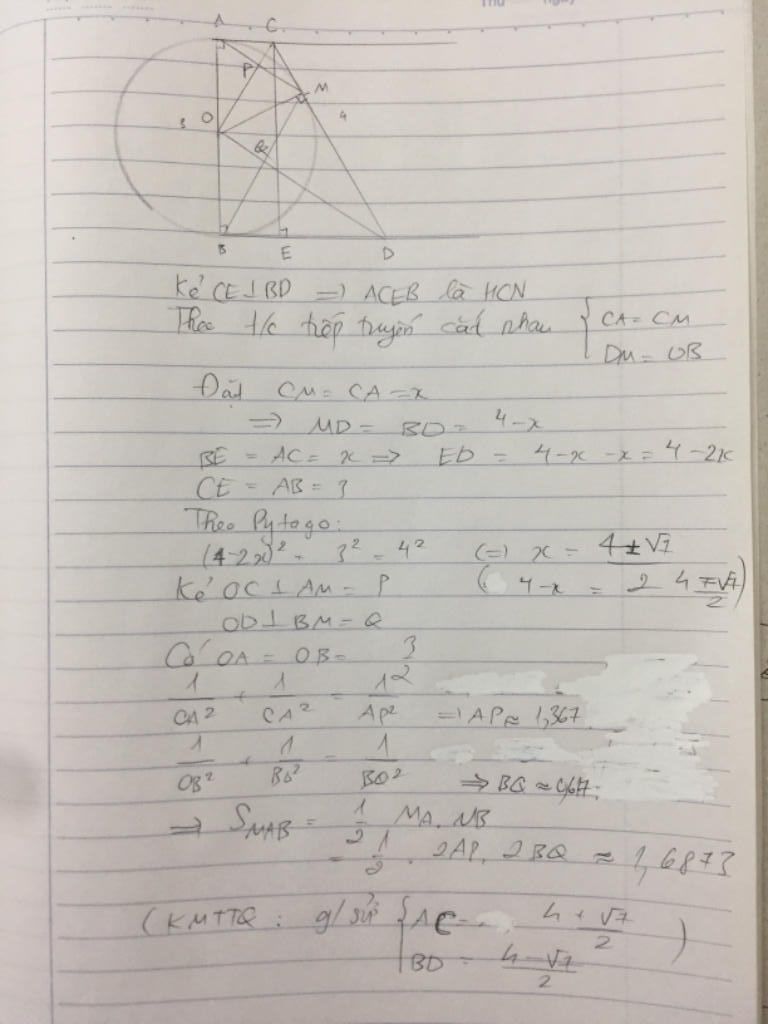 Thu ngày
A C
P M
3 O 4
Q
B E D
Kẻ CE ⊥ BD => ACEB là HCN
Theo t/c tiếp tuyến cắt nhau { CA = CM
DM = DB
Đặt CM = CA = x
=> MD = BD = 4-x
BE = AC = x => ED = 4-x-x = 4-2x
CE = AB = 3
Theo Pytago:
(4-2x)² + 3² = 4² (=) x = 4 ± √7
Kẻ OC ⊥ AM = P ( 4-x = 2 4 ∓ √7 / 2 )
OD ⊥ BM = Q
Có OA = OB = 3
2
1/OA² + 1/CA² = 1/AP² => AP ≈ 1,367
1/OB² + 1/BD² = 1/BQ² => BQ ≈ 0,617
=> S_MAB = 1/2 MA. MB
= 1/2 . 2AP. 2BQ ≈ 1,6873
(KMTTQ : g/sử { AC = 4 + √7 / 2 )
BD = 4 - √7 / 2